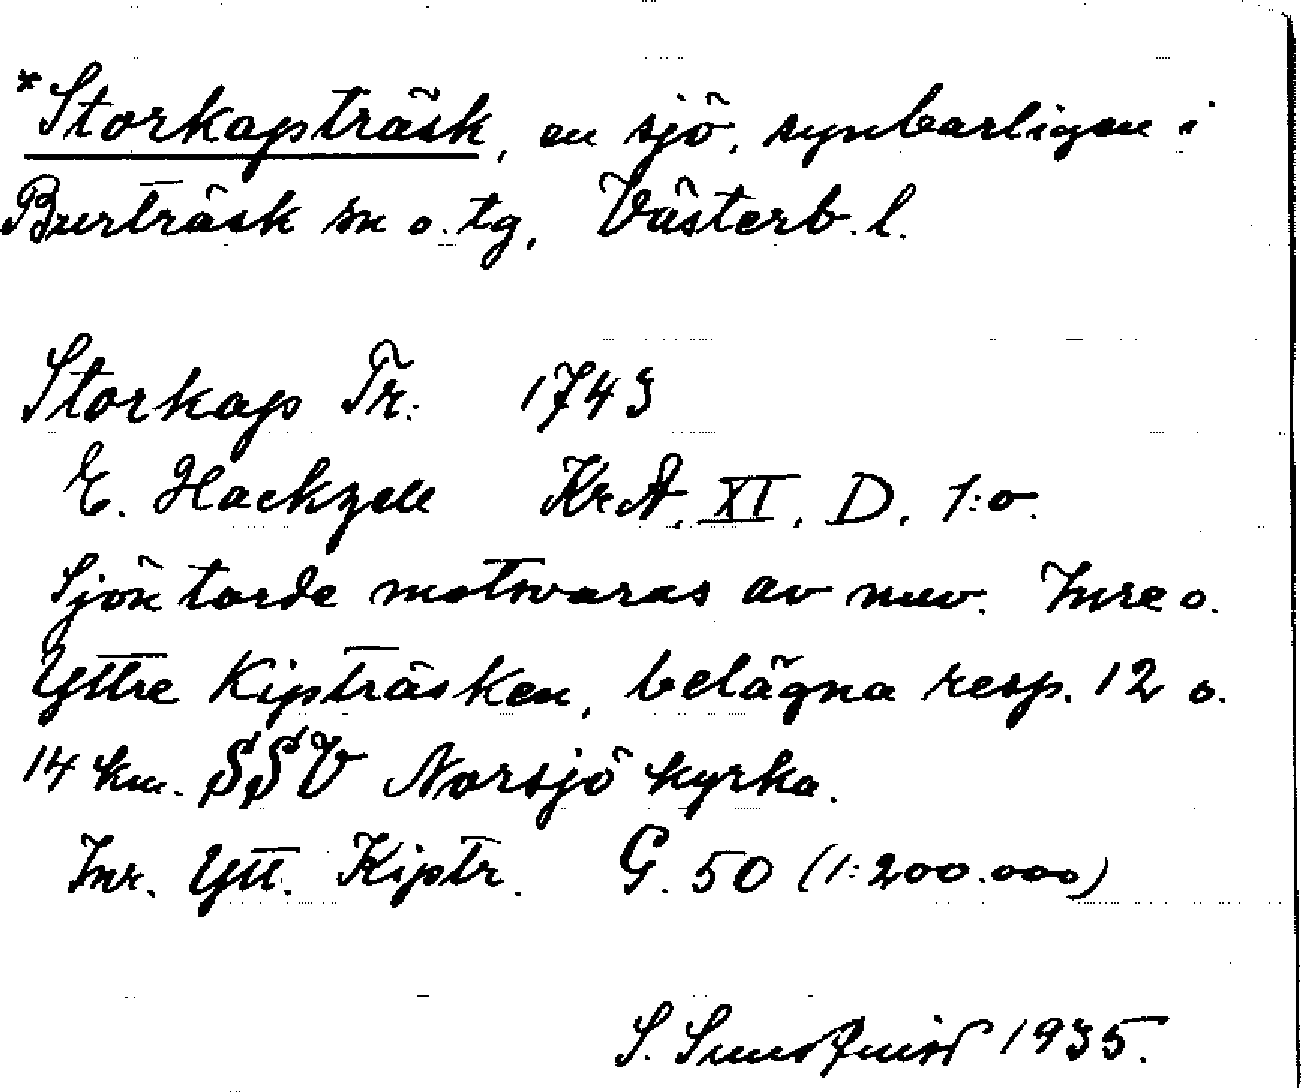 *Storkapträsk, en sjö, synbarligen i
Burträsk sn o. tg, Västerb. l.
Storkap Tr. 1743
E. Hackzell KrA. XI. D. 1:o.
Sjön torde motsvaras av nuv. Inre o.
Yttre Kipträsken, belägna resp. 12 o.
14 km. SSV Norsjö kyrka.
Inr. Ytt. Kiptr. G. 50 (1:200.000)
S. Sundquist 1935.